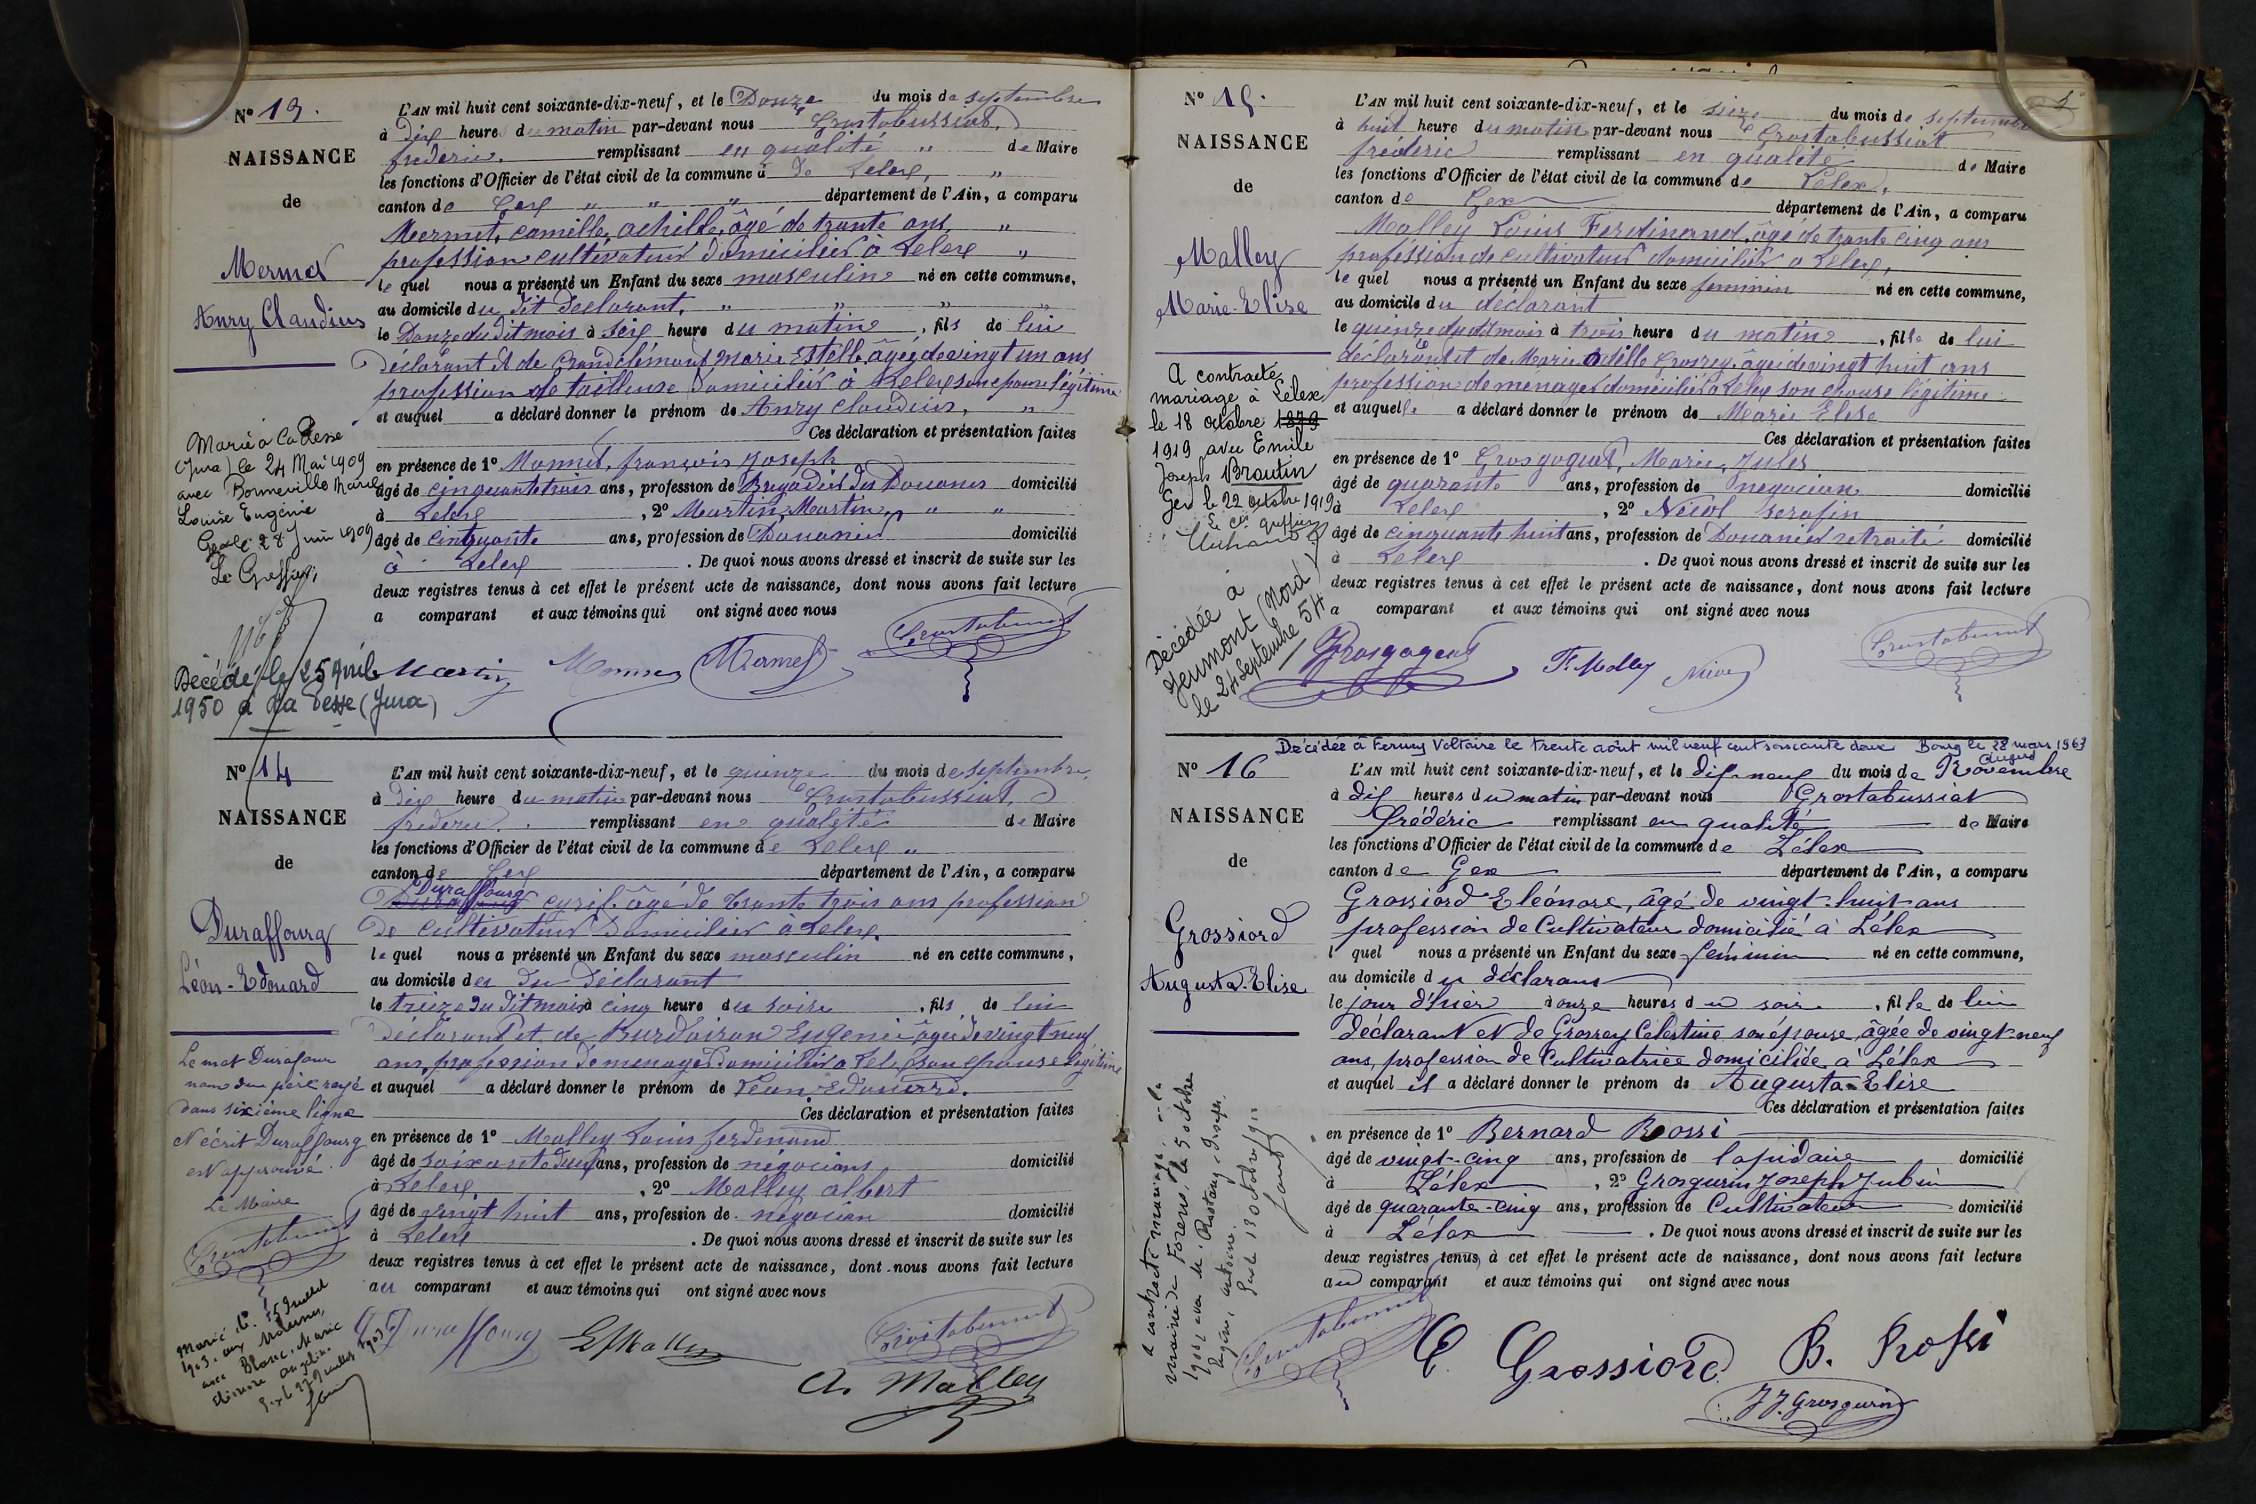 Nº 13.
NAISSANCE
de
Mermet
Anry Claudius
L'AN mil huit cent soixante-dix-neuf, et le Douze du mois de septembre
à dix heures du matin par-devant nous Grostabussiat
frederic. remplissant en qualité " de Maire
les fonctions d'Officier de l'état civil de la commune à de Lelex, "
canton de Gex " " " département de l'Ain, a comparu
Mermet, camille, achille, âgé de trante ans, "
profession cultivateur domicilier à Lelex "
lequel nous a présenté un Enfant du sexe masculin né en cette commune,
au domicile du dit Declarant. " " " "
le Douze du dit mois à Seix heure du matin, fils de lui
Déclarant et de Grandclément marie Estelle âgée de vingt un ans
profession de tailleuse domicilier à Lelex son epouse légitime
et auquel a déclaré donner le prénom de Anry Claudius, "
Ces déclaration et présentation faites
en présence de 1º Monnet, françois joseph
âgé de cinquante trois ans, profession de Brigadier des Douanes domicilié
à Lelex, 2º Martin, Martin, " "
âgé de cinquante ans, profession de Douanier domicilié
à Lelex. De quoi nous avons dressé et inscrit de suite sur les
deux registres tenus à cet effet le présent acte de naissance, dont nous avons fait lecture
a comparant et aux témoins qui ont signé avec nous
Marié à La Pesse
(Jura) le 24 Mai 1909
avec Bonneville Marie
Louise Eugénie
Gex le 28 Juin 1909
Le Greffier,
Décédé le 25 Avril
1950 à La Pesse (Jura)
Martin Monnet Mermet Grostabussiat
Nº 14
NAISSANCE
de
Duraffourg
Léon-Edouard
L'AN mil huit cent soixante-dix-neuf, et le quinze du mois de septembre,
à dix heure du matin par-devant nous Grostabussiat,
frederic. remplissant en qualité de Maire
les fonctions d'Officier de l'état civil de la commune de Lelex "
canton de Gex département de l'Ain, a comparu
Duraffourg
cyril âgé de trante trois ans profession
De cultivateur domicilier à Lelex.
lequel nous a présenté un Enfant du sexe masculin né en cette commune,
au domicile de du Déclarant
le treize du dit mois à cinq heure du soire, fils de lui
Déclarant et de Burdairon Eugenie âgée de vingt neuf
ans, profession de menager domicilier a Lelex son epouse légitime
et auquel a déclaré donner le prénom de Léon-Edouard.
Ces déclaration et présentation faites
en présence de 1º Malley Louis ferdinand
âgé de soixante deux ans, profession de négocians domicilié
à Lelex, 2º Malley albert
âgé de vingt huit ans, profession de négocian domicilié
à Lelex. De quoi nous avons dressé et inscrit de suite sur les
deux registres tenus à cet effet le présent acte de naissance, dont nous avons fait lecture
au comparant et aux témoins qui ont signé avec nous
Le mot Durafour
nom du père rayé
dans sixième ligne
et écrit Duraffourg
est approuvé.
Le Maire
Grostabussiat
Marié le 15 Juillet
1903. aux Molunes,
avec Blanc, Marie
Gex le 27 Juillet 1903
C. Duraffourg Malley Grostabussiat
A. Malley
Nº 15.
NAISSANCE
de
Malley
Marie-Elise
L'AN mil huit cent soixante-dix-neuf, et le sieze du mois de septembre
à huit heure du matin par-devant nous Grostabussiat
frédéric remplissant en qualité de Maire
les fonctions d'Officier de l'état civil de la commune de Lelex,
canton de Gex département de l'Ain, a comparu
Malley Louis Ferdinand, âgé de trante cinq ans
proféssion de cultivateur domicilier a Lelex,
lequel nous a présenté un Enfant du sexe feminin né en cette commune,
au domicile du déclarant
le quinze du dit mois à trois heure du matin, fille de lui
déclarant et de Marie Odille Grosrey âgée de vingt huit ans
profession de menager domicilier a Lelex son epouse légitime
et auquelle a déclaré donner le prénom de Marie Elise
Ces déclaration et présentation faites
en présence de 1º Grosgogeat, Marie, Jules
âgé de quarante ans, profession de negocian domicilié
à Lelex, 2º Nicol serafin
âgé de cinquante huit ans, profession de Douanier retraité domicilié
à Lelex. De quoi nous avons dressé et inscrit de suite sur les
deux registres tenus à cet effet le présent acte de naissance, dont nous avons fait lecture
a comparant et aux témoins qui ont signé avec nous
A contracté
mariage à Lélex
le 18 octobre 1879
1919 avec Emile
Joseph Brautin
Gex le 22 octobre 1919
Décédée à
Jeumont (Nord)
le 24 Septembre 54
Grosgogeat F. Malley Nicol Grostabussiat
Décédée à Ferney Voltaire le trente août mil neuf cent soixante deux Bourg le 28 mars 1963
Nº 16
NAISSANCE
de
Grossiord
Augusta-Elise
L'AN mil huit cent soixante-dix-neuf, et le dix-neuf du mois de Novembre
à dix heures du matin par-devant nous Grostabussiat
Frédéric remplissant en qualité de Maire
les fonctions d'Officier de l'état civil de la commune de Lélex
canton de Gex département de l'Ain, a comparu
Grossiord Eléonore, âgé de vingt-huit ans
profession de Cultivateur domicilié à Lélex
l quel nous a présenté un Enfant du sexe féminin né en cette commune,
au domicile du déclarant
le jour d'hier à onze heures du soir, fille de lui
déclarant et de Grosrey Célestine son épouse, âgée de vingt-neuf
ans, profession de Cultivatrice domiciliée à Lélex
et auquel il a déclaré donner le prénom de Augusta-Elise
Ces déclaration et présentation faites
en présence de 1º Bernard Rossi
âgé de vingt-cinq ans, profession de lapidaire domicilié
à Lélex, 2º Grosgurin Joseph Jubin
âgé de quarante-cinq ans, profession de Cultivateur domicilié
à Lélex. De quoi nous avons dressé et inscrit de suite sur les
deux registres tenus à cet effet le présent acte de naissance, dont nous avons fait lecture
au comparant et aux témoins qui ont signé avec nous
a contracté mariage à la
mairie de Forens, le 5 octobre
Grostabussiat E. Grossiord B. Rossi
J J. Grosgurin